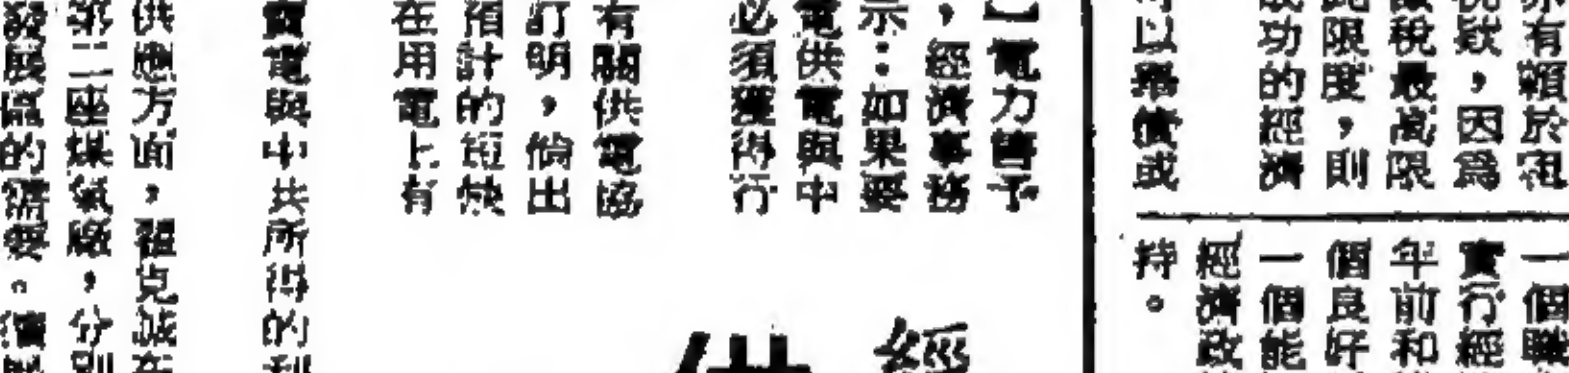 有賴於
，因為
稅最高限
此限度，則
成功的經濟
以舉債或
一個職
實行經
年前和
個良好
一個能
經濟政
持。
】電力暫予
，經濟事務
示：如果要
電供電與中
必須獲得行
經
供
有關供電協
訂明，倘出
預計的短缺
在用電上有
賣電與中共所得的利
供應方面，翟克誠在
第二座煤氣廠，分別
發展區的需要。